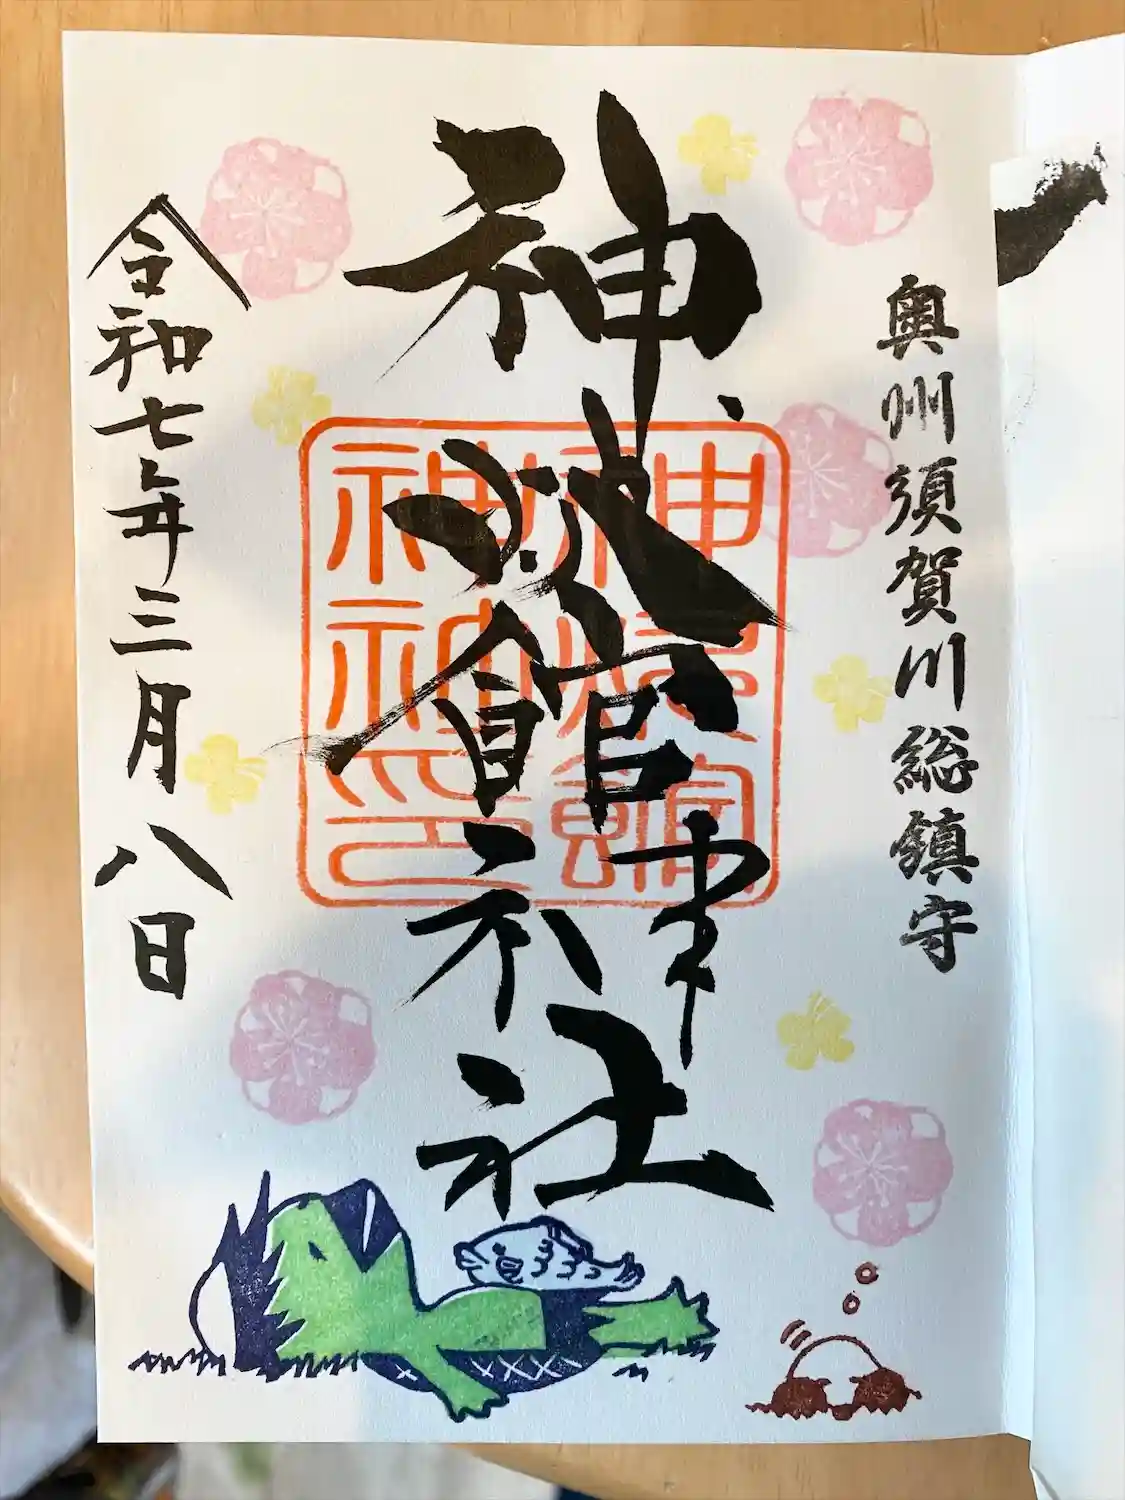 奥州須賀川総鎮守
神炊館神社
令和七年三月八日